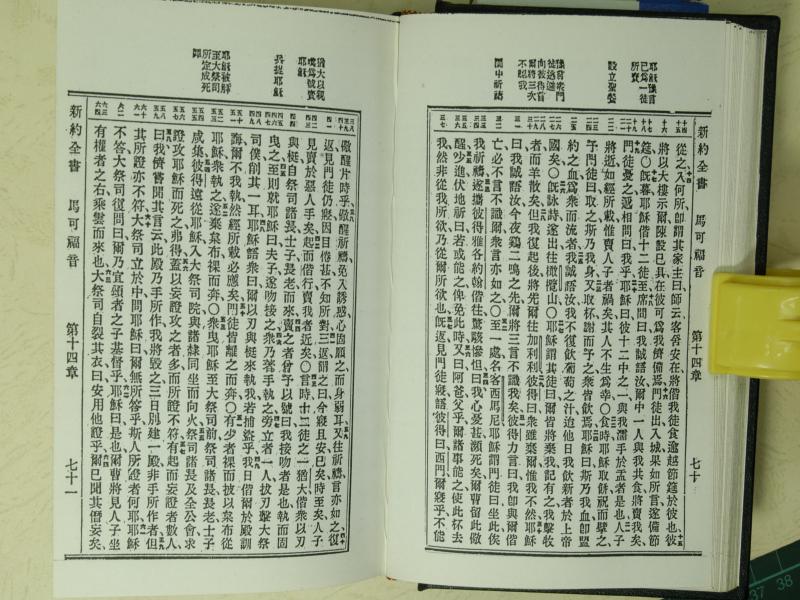 新約全書 馬可福音 第十四章 七十
耶穌預言
已爲一徒
所賣
設立聖餐
預言衆門
徒逃避
向彼得言
爾將三次
不認我
園中祈禱
從之入何所卽謂其家主曰師云客舍安在將偕我徒食逾越節筵於彼也彼
將以大樓示爾陳設已具在彼可爲我儕備焉門徒出入城果如所言遂備節
筵〇旣暮耶穌偕十二徒至席間曰我誠語汝爾中一人與我共食將賣我矣
門徒憂之遞相問曰我乎耶穌曰彼十二中之一與我濡手於盂者是也人子
將逝如經所載惟賣人子者禍矣其人不生爲幸〇食時耶穌取餅祝而擘之
予門徒曰取之斯乃我身又取杯謝而予之衆皆飮焉耶穌曰斯乃我血卽盟
約之血爲衆而流者我誠語汝我不復飮葡萄之汁迨他日我飮新者於上帝
國矣〇旣詠詩遂出往橄欖山〇耶穌謂其徒曰爾皆將棄我記有之我擊牧
者而羊散矣但我復起後將先爾往加利利彼得曰衆雖棄爾惟我不然耶穌
曰我誠語汝今夜鷄二鳴之先爾將三言不識我矣彼得力言曰我卽與爾偕
亡必不言不識爾衆言亦如之〇至一處名客西馬尼耶穌謂門徒曰坐此俟
我祈禱遂攜彼得雅各約翰偕往驚駭慘怛曰我心憂甚瀕死矣爾曹留此儆
醒少進伏地祈曰若或能之俾免此時又曰阿爸父乎爾諸事能之使此杯去
我然非從我所欲乃從爾所欲也旣返見門徒寢語彼得曰西門爾寢乎不能
猶大以親
嘴爲號賣
耶穌
兵捉耶穌
耶穌被解
至大祭司
所定成死
罪
儆醒片時乎儆醒祈禱免入誘惑心固願之而身弱耳又往祈禱言亦如之復
返見門徒仍寢因目倦甚不知所對三返謂之曰今寢且安已矣時至矣人子
見賣於惡人手矣起而偕行賣我者近矣〇言時十二徒之一猶大偕衆以刃
與梃自祭司諸長士子長老而來賣之者曾予以號曰我接吻者是也執而固
曳之至則就耶穌曰夫子遂吻接之衆乃著手執之旁立者一人拔刃擊大祭
司僕削其一耳耶穌語衆曰爾以刃與梃來執我若捕盜乎我日偕爾於殿訓
誨爾不我執然經所載必應矣門徒皆離之而奔〇有少者裸而披以枲布從
耶穌衆執之遂棄枲布裸而奔〇衆曳耶穌至大祭司前祭司諸長長老士子
咸集彼得遠從耶穌入大祭司院與諸隸同坐而向火祭司諸長及全公會求
證攻耶穌而死之弗得蓋以妄證攻之者多而所證不符有起而妄證者數人
曰我儕嘗聞其言云此殿乃手所作我將毀之三日別建一殿非手所作者但
其所證亦不符大祭司立於中問耶穌曰爾無所答乎斯人所證者何耶耶穌
不答大祭司復問曰爾乃宜頌者之子基督乎耶穌曰是也爾曹將見人子坐
有權者之右乘雲而來也大祭司自裂其衣曰安用他證乎爾已聞其僭妄矣
新約全書 馬可福音 第十四章 七十一
37 38